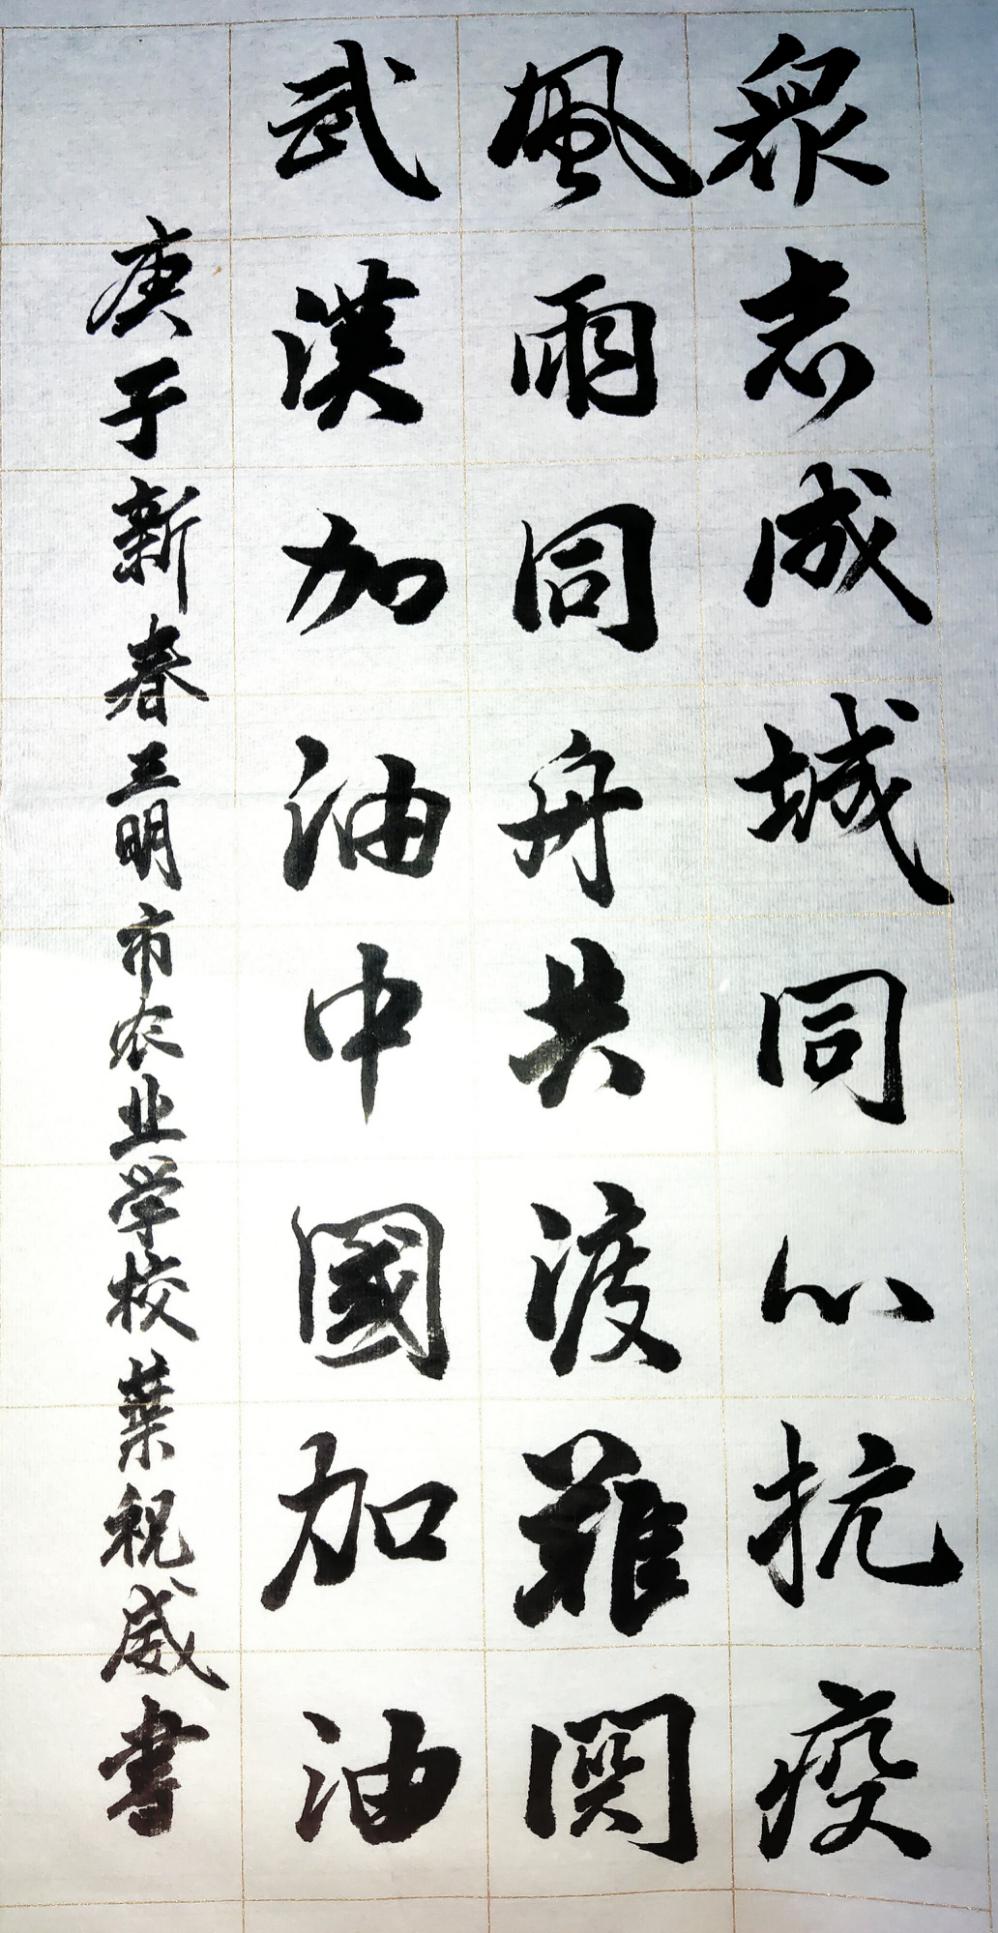 眾志成城同心抗疫
風雨同舟共渡難関
武漢加油中國加油
庚子新春三明市农业学校葉祝威書